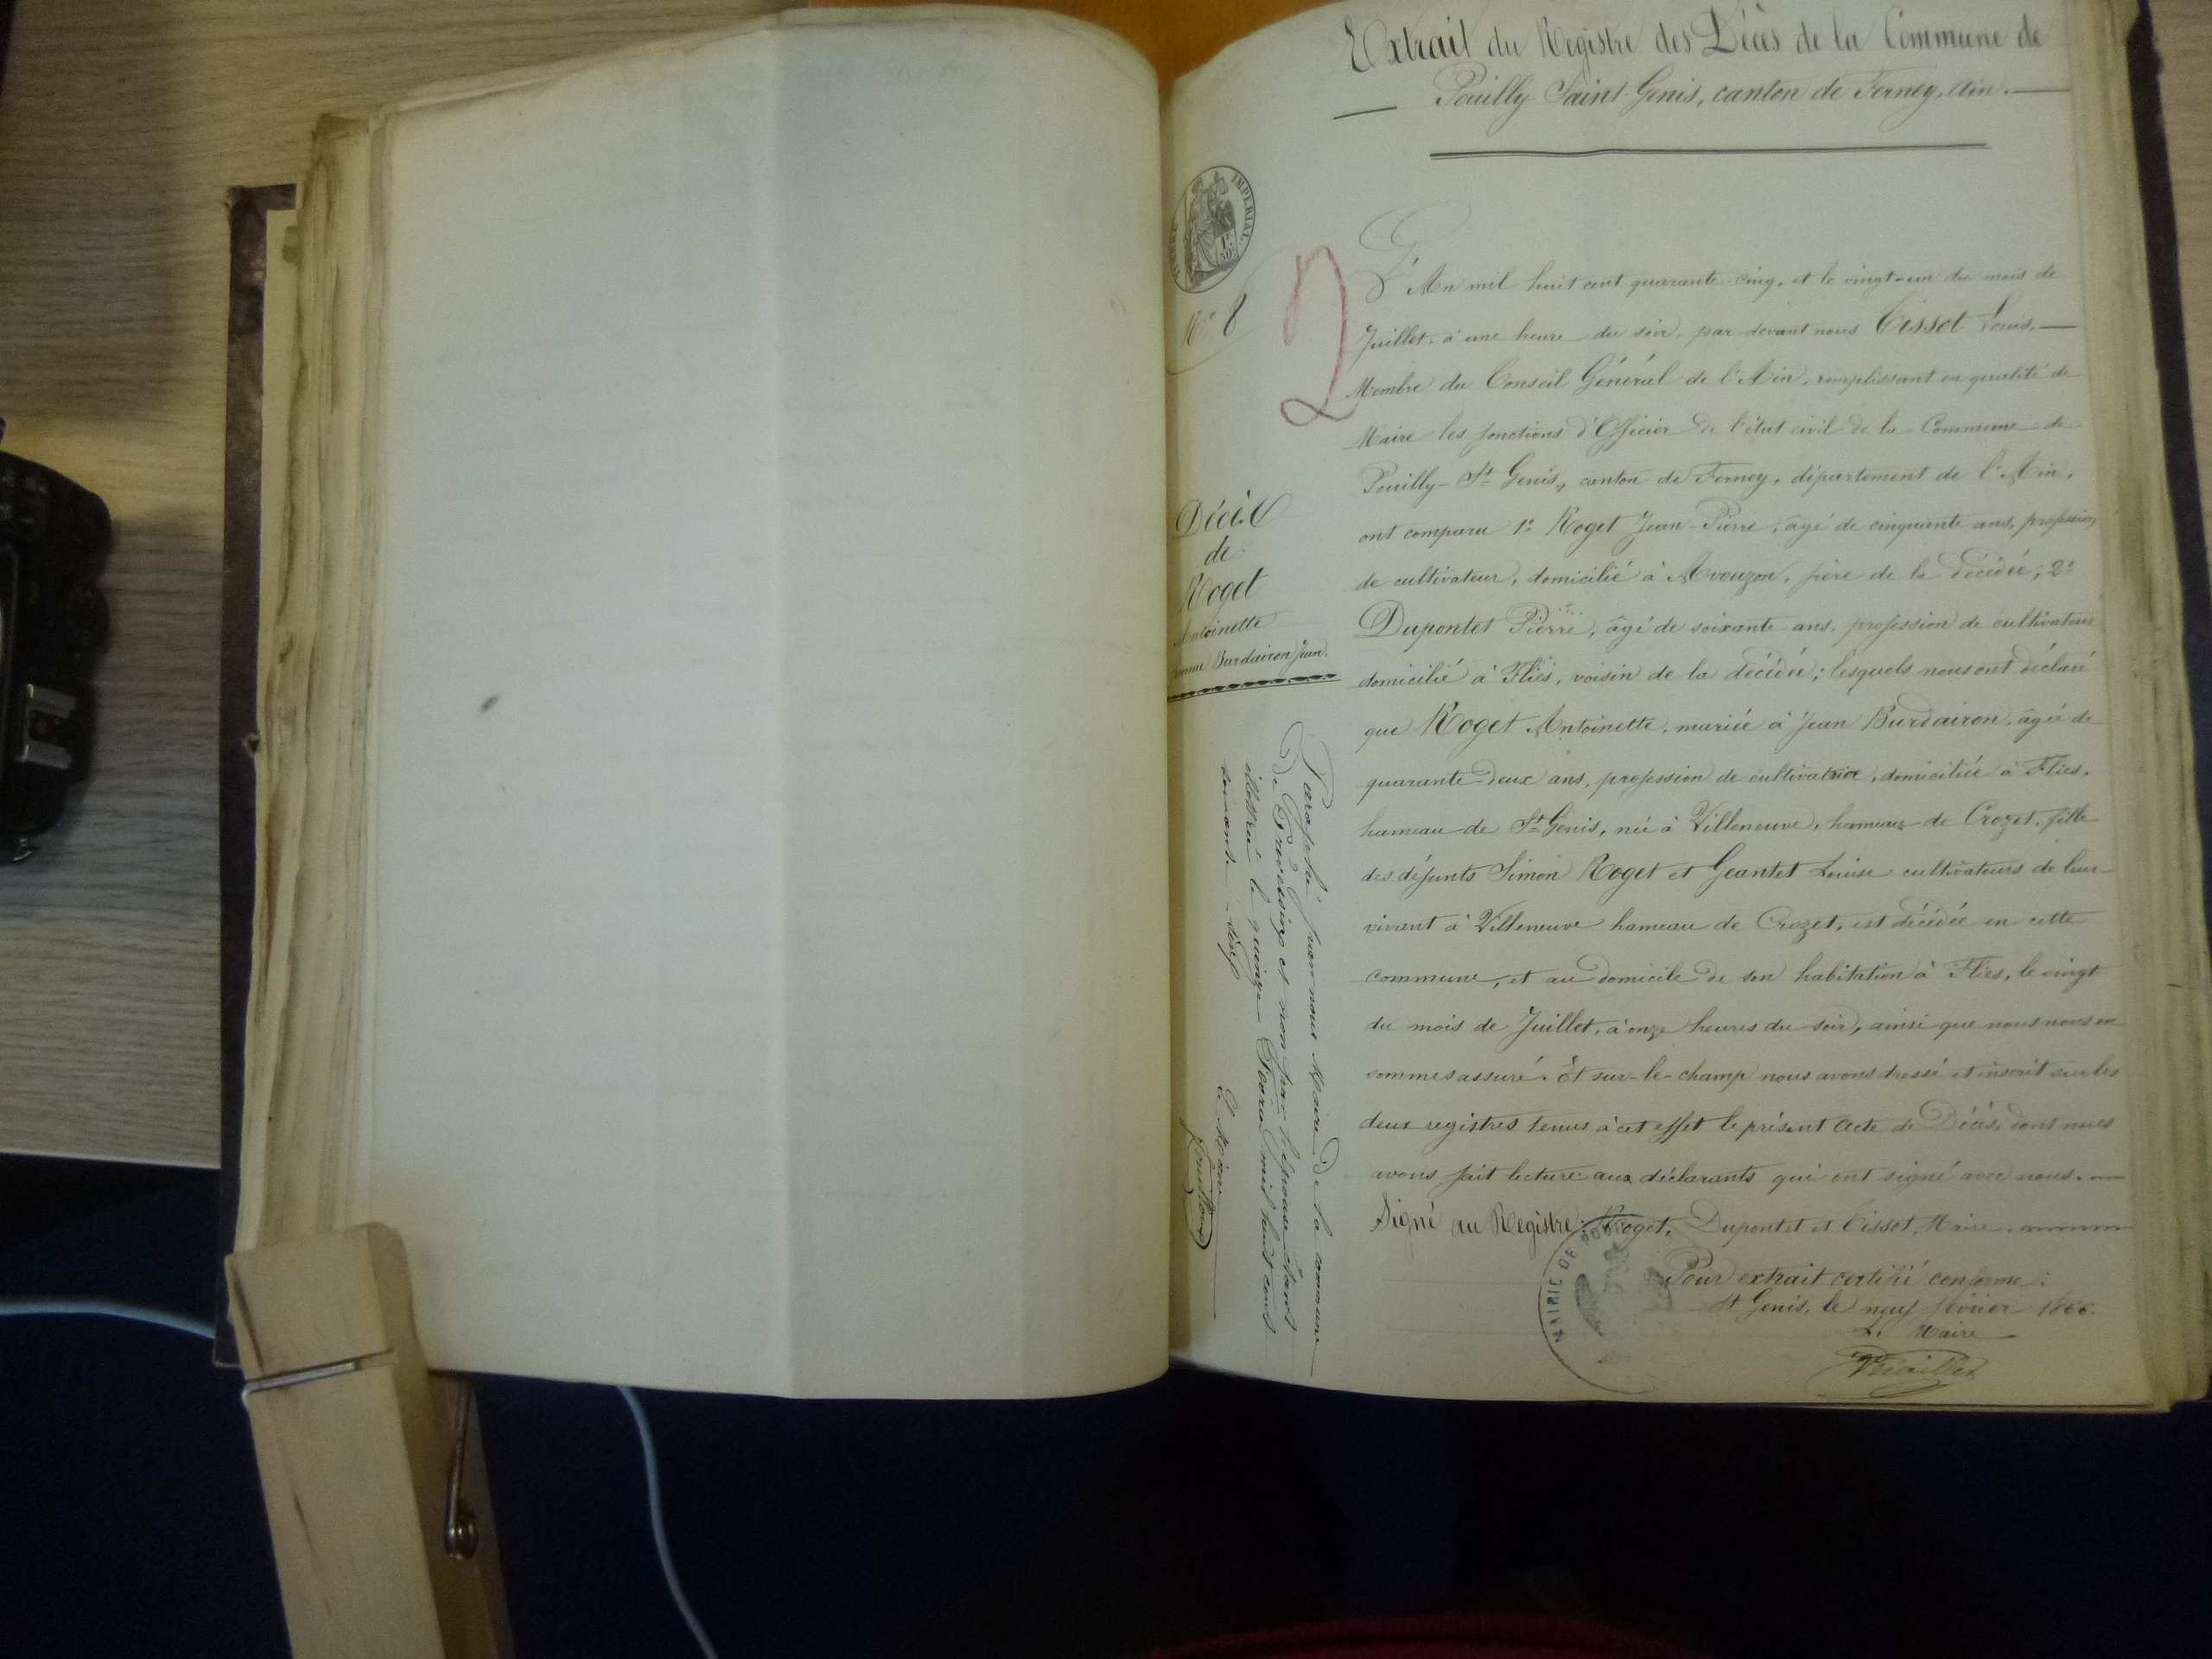 Extrait du Registre des Décès de la Commune de
Pouilly-Saint-Genis, canton de Ferney, Ain.
TIMBRE IMPERIAL
1F 50
No 8
2
Décès
de
Roget
Antoinette
femme Burdairon Jean.
L'An mil huit cent quarante-cinq, et le vingt-un du mois de
Juillet, à une heure du soir, par-devant nous Tissot Louis,
Membre du Conseil Général de l'Ain, remplissant en qualité de
Maire les fonctions d'Officier de l'état civil de la Commune de
Pouilly-St Genis, canton de Ferney, département de l'Ain,
ont comparu 1o Roget Jean-Pierre, âgé de cinquante ans, profession
de cultivateur, domicilié à Avouzon, frère de la décédée; 2o
Dupontet Pierre, âgé de soixante ans, profession de cultivateur
domicilié à Flies, voisin de la décédée; lesquels nous ont déclaré
que Roget Antoinette, mariée à Jean Burdairon, âgée de
quarante-deux ans, profession de cultivatrice, domiciliée à Flies,
hameau de St Genis, née à Villeneuve, hameau de Crozet, fille
des défunts Simon Roget et Geantet Louise cultivateurs de leur
vivant à Villeneuve hameau de Crozet, est décédée en cette
commune, et au domicile de son habitation à Flies, le vingt
du mois de Juillet, à onze heures du soir, ainsi que nous nous en
sommes assuré. Et sur-le-champ nous avons dressé et inscrit sur les
deux registres tenus à cet effet le présent Acte de Décès, dont nous
avons fait lecture aux déclarants qui ont signé avec nous.
Signé au Registre: Roget, Dupontet et Tissot, Maire.
Pour extrait certifié conforme:
St Genis, le neuf février 1866.
Le Maire
MAIRIE DE POU
Paraphé par nous Maire de la commune
de Prévessins et non par l'épouse étant
illettrée le quinze février mil huit cent
soixante-six
Le Maire